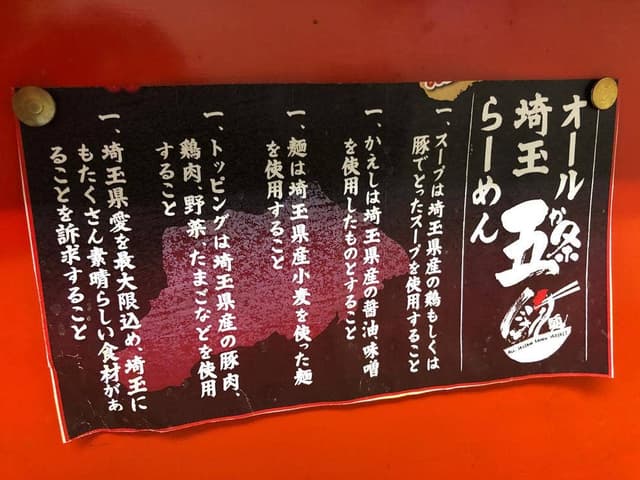 オール
埼玉
らーめん
五が条
一、スープは埼玉県産の鶏もしくは
豚でとったスープを使用すること
一、かえしは埼玉県産の醤油味噌
を使用したものとすること
一、麺は埼玉県産小麦を使った麺
を使用すること
一、トッピングは埼玉県産の豚肉、
鶏肉、野菜、たまごなどを使用
すること
一、埼玉県愛を最大限込め、埼玉に
もたくさん素晴らしい食材があ
ることを訴求すること